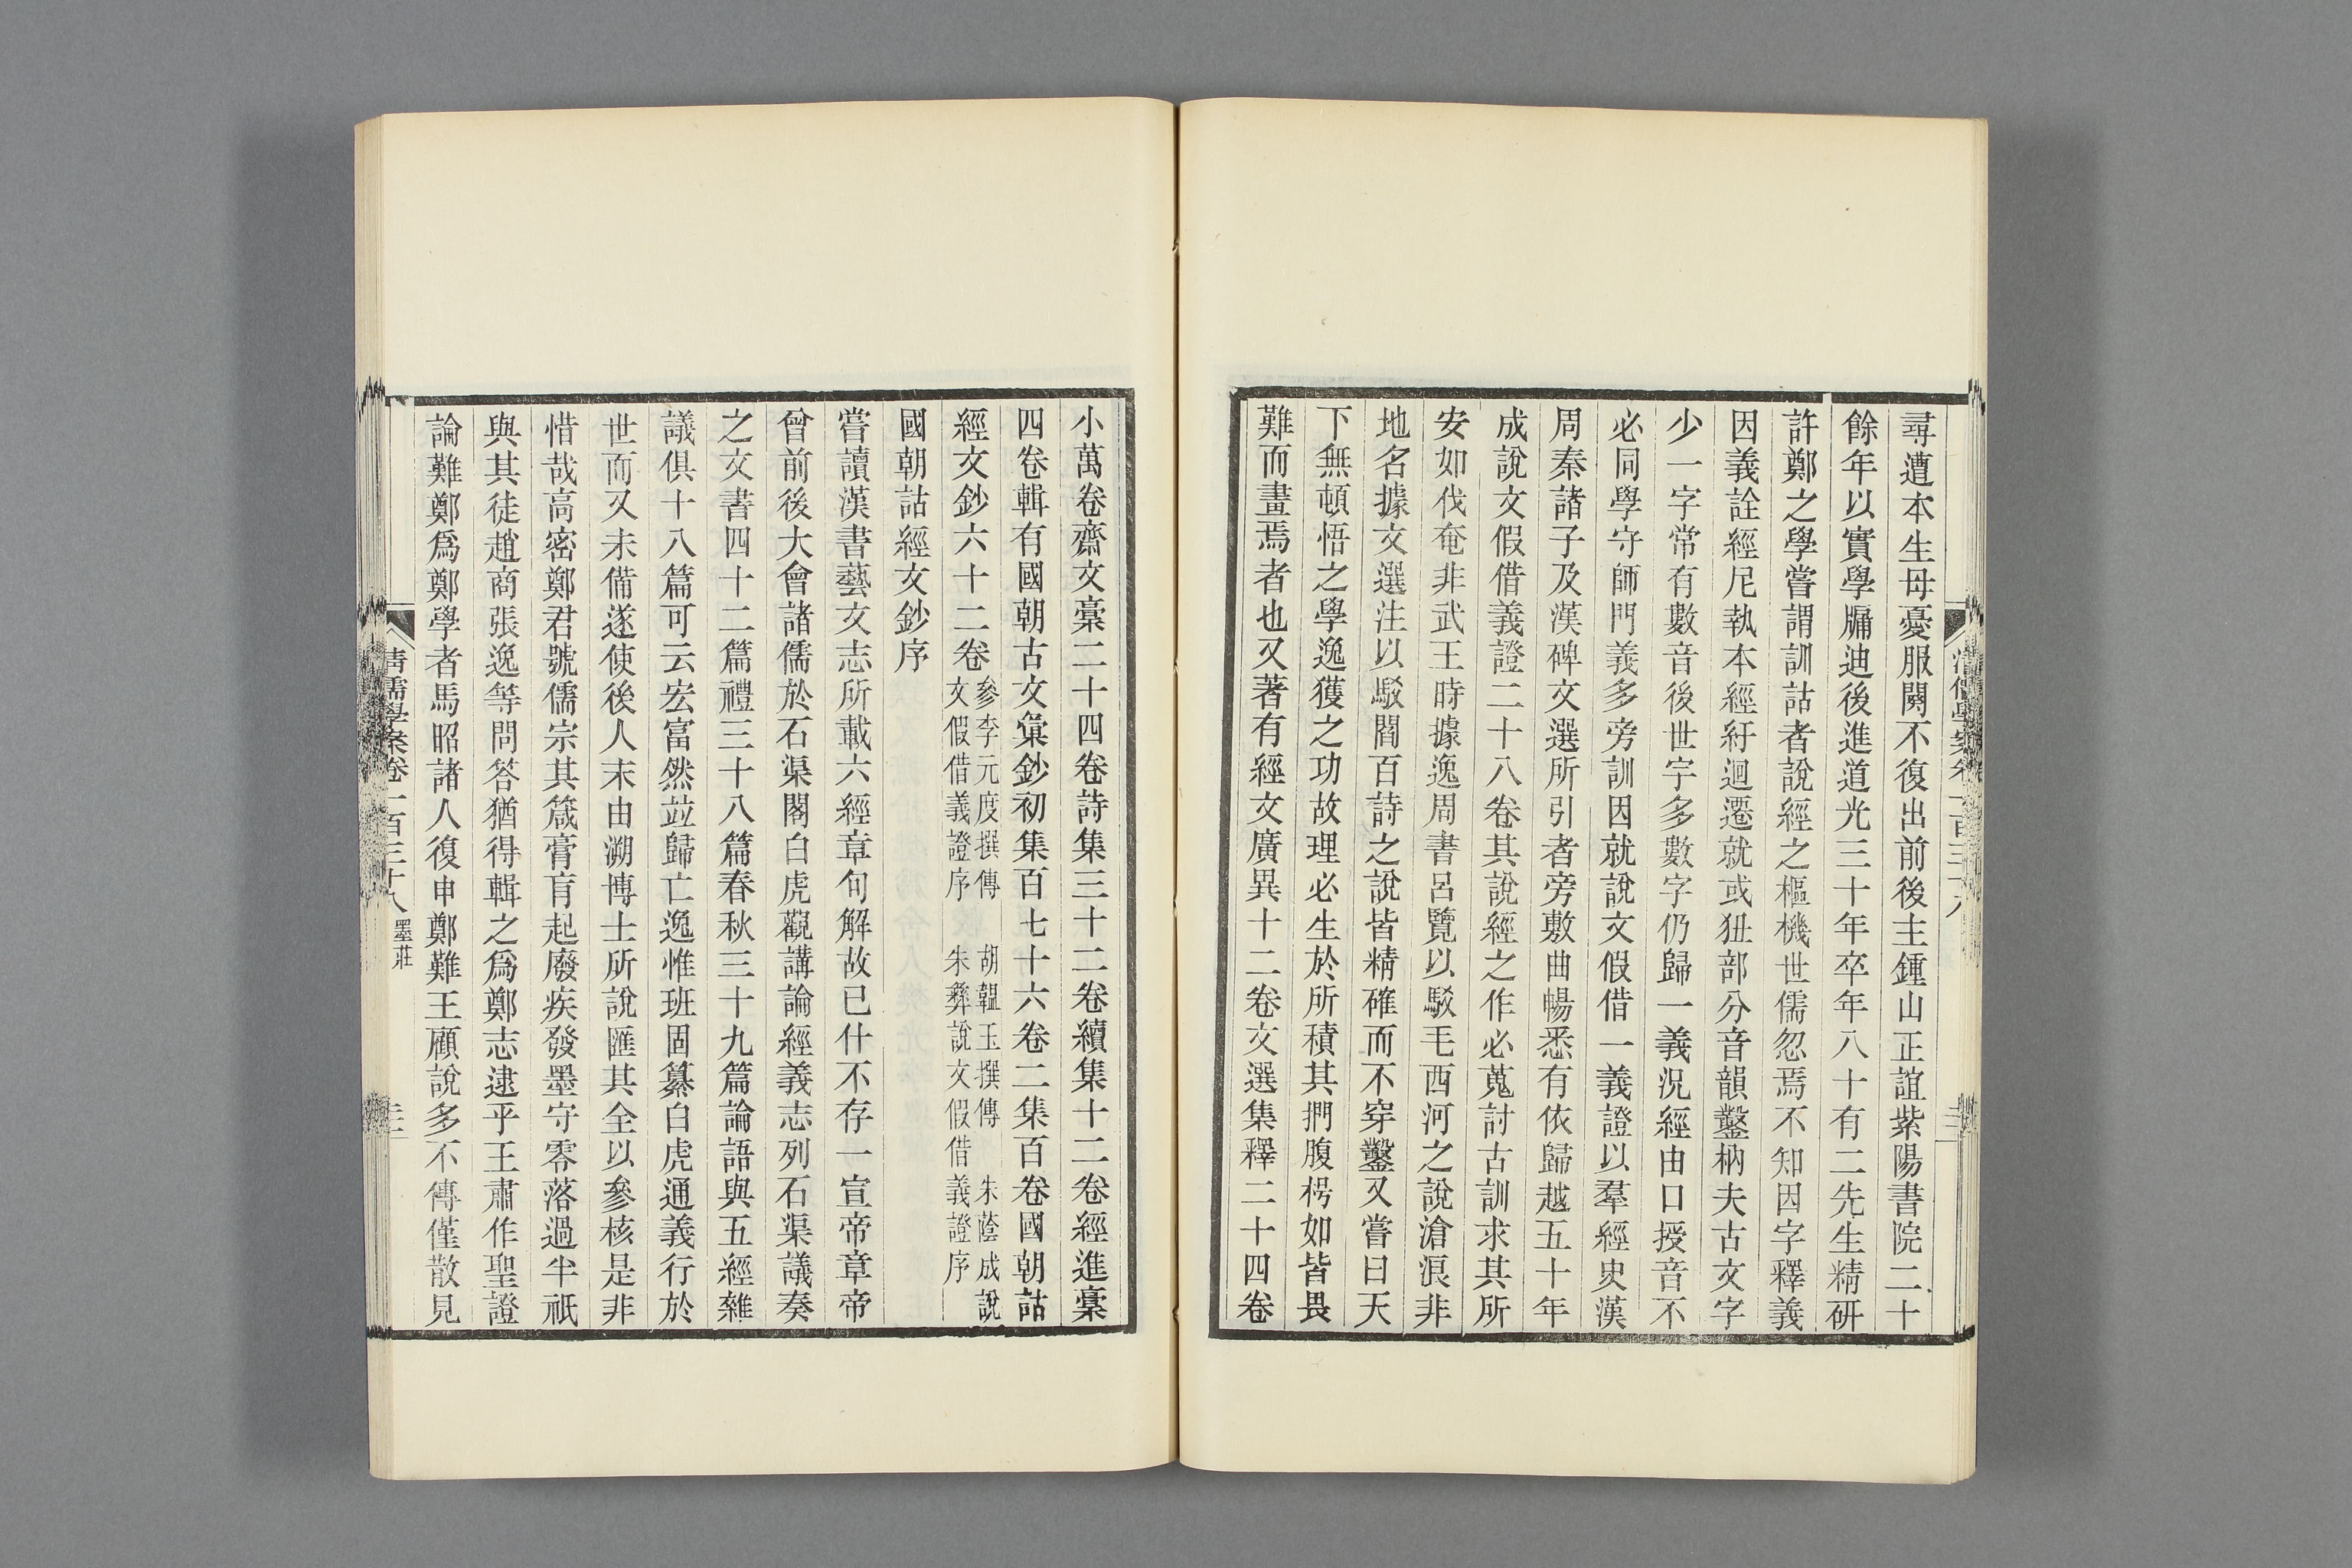 尋遭本生母憂服闋不復出前後主鍾山正誼紫陽書院二十
餘年以實學牖迪後進道光三十年卒年八十有二先生精研
許鄭之學嘗謂訓詁者說經之樞機世儒忽焉不知因字釋義
因義詮經凥執本經紆迴遷就或狃部分音韻鑿枘夫古文字
少一字常有數音後世字多數字仍歸一義況經由口授音不
必同學守師門義多旁訓因就說文假借一義證以羣經史漢
周秦諸子及漢碑文選所引者旁敷曲暢悉有依歸越五十年
成說文假借義證二十八卷其說經之作必蒐討古訓求其所
安如伐奄非武王時據逸周書呂覽以駁毛西河之說滄浪非
地名據文選注以駁閻百詩之說皆精確而不穿鑿又嘗曰天
下無頓悟之學逸獲之功故理必生於所積其捫腹枵如皆畏
難而畫焉者也又著有經文廣異十二卷文選集釋二十四卷
小萬卷齋文稾二十四卷詩集三十二卷續集十二卷經進稾
四卷輯有國朝古文彙鈔初集百七十六卷二集百卷國朝詁
經文鈔六十二卷參李元度撰傳 胡韞玉撰傳 朱蔭成說
文假借義證序 朱彝說文假借義證序
國朝詁經文鈔序
嘗讀漢書藝文志所載六經章句解故已什不存一宣帝章帝
曾前後大會諸儒於石渠閣白虎觀講論經義志列石渠議奏
之文書四十二篇禮三十八篇春秋三十九篇論語與五經雜
議俱十八篇可云宏富然竝歸亡逸惟班固纂白虎通義行於
世而又未備遂使後人末由溯博士所說匯其全以參核是非
惜哉高密鄭君號儒宗其箴膏肓起廢疾發墨守零落過半祇
與其徒趙商張逸等問答猶得輯之爲鄭志逮乎王肅作聖證
論難鄭爲鄭學者馬昭諸人復申鄭難王顧說多不傳僅散見
清儒學案卷一百三十八 墨莊